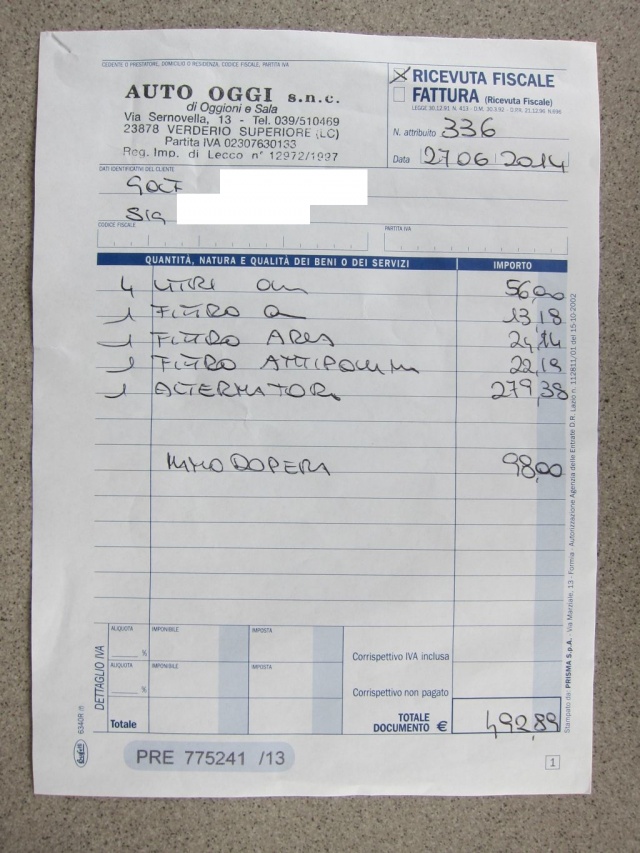 CEDENTE O PRESTATORE, DOMICILIO O RESIDENZA, CODICE FISCALE, PARTITA IVA
AUTO OGGI s.n.c.
di Oggioni e Sala
Via Sernovella, 13 - Tel. 039/510469
23878 VERDERIO SUPERIORE (LC)
Partita IVA 02307630133
Reg. Imp. di Lecco n° 12972/1997
RICEVUTA FISCALE
FATTURA (Ricevuta Fiscale)
N. attribuito 336
Data 27 06 2014
DATI IDENTIFICATIVI DEL CLIENTE
GOLF
SIG
CODICE FISCALE
PARTITA IVA
QUANTITÀ, NATURA E QUALITÀ DEI BENI O DEI SERVIZI IMPORTO
4 LITRI 56,00
1 FILTRO 13,18
1 FILTRO ARIA 24,14
1 FILTRO ANTIPOLLINI 22,19
1 ALTERNATORE 279,38
MANODOPERA 98,00
DETTAGLIO IVA
ALIQUOTA IMPONIBILE IMPOSTA
%
Corrispettivo IVA inclusa
ALIQUOTA IMPONIBILE IMPOSTA
%
Corrispettivo non pagato
Totale
TOTALE DOCUMENTO € 492,89
PRE 775241 /13
1
6340R
Stampato da: PRISMA S.p.A. - Via Marziale, 13 - Formia - Autorizzazione Agenzia delle Entrate D.R. Lazio n. 112811/01 del 15-10-2002